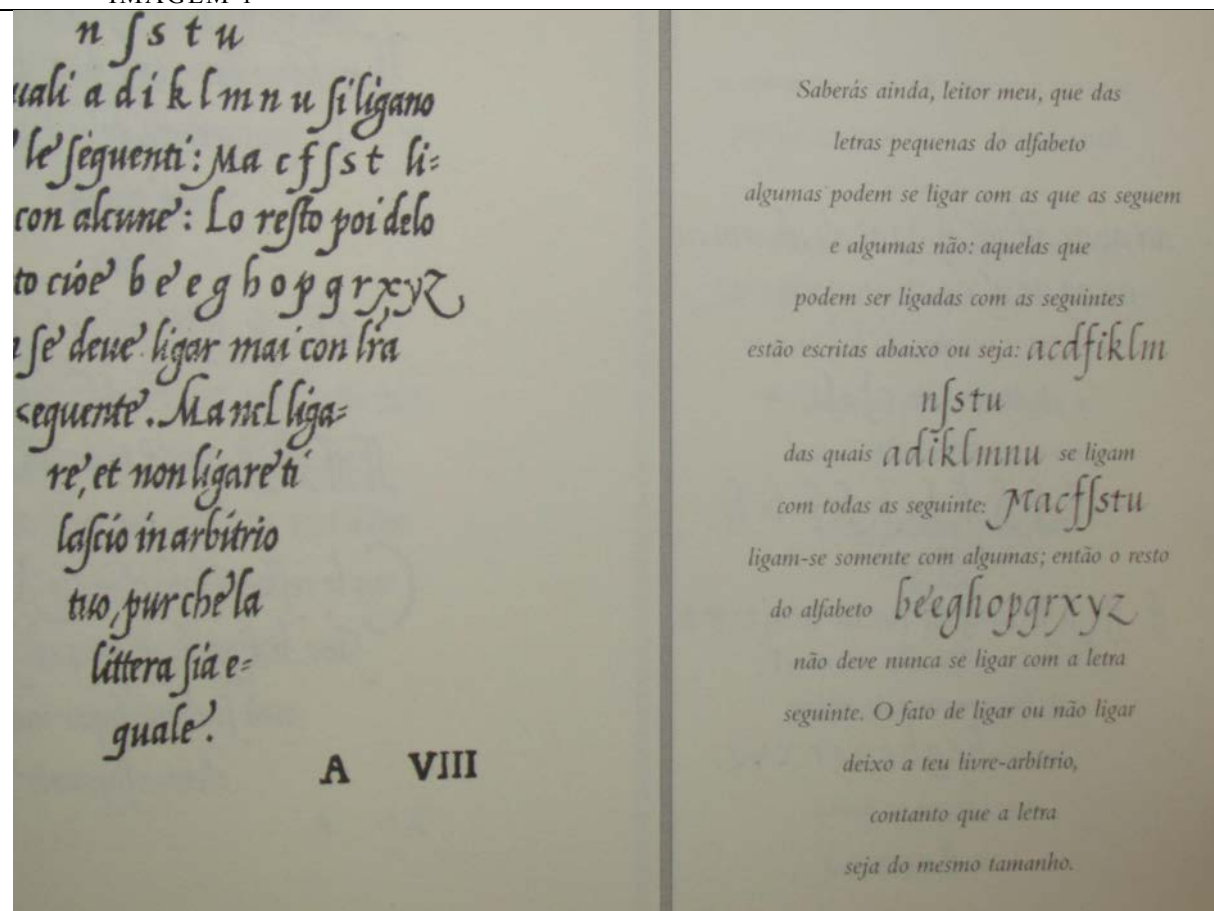 n ſ s t u
uali a d i k l m n u ſi ligano
le ſequenti: Ma c f ſ s t li=
con alcune: Lo reſto poi delo
to cioe b e e g h o p q r x y z
ſe deue ligar mai con lra
sequente. Ma nel liga=
re, et non ligare ti
laſcio in arbitrio
tuo, pur che la
littera ſia e=
quale.
A VIII
Saberás ainda, leitor meu, que das
letras pequenas do alfabeto
algumas podem se ligar com as que as seguem
e algumas não: aquelas que
podem ser ligadas com as seguintes
estão escritas abaixo ou seja: acdfiklm
nſstu
das quais adiklmnu se ligam
com todas as seguinte: Macfſstu
ligam-se somente com algumas; então o resto
do alfabeto beeghopqrxyz
não deve nunca se ligar com a letra
seguinte. O fato de ligar ou não ligar
deixo a teu livre-arbítrio,
contanto que a letra
seja do mesmo tamanho.